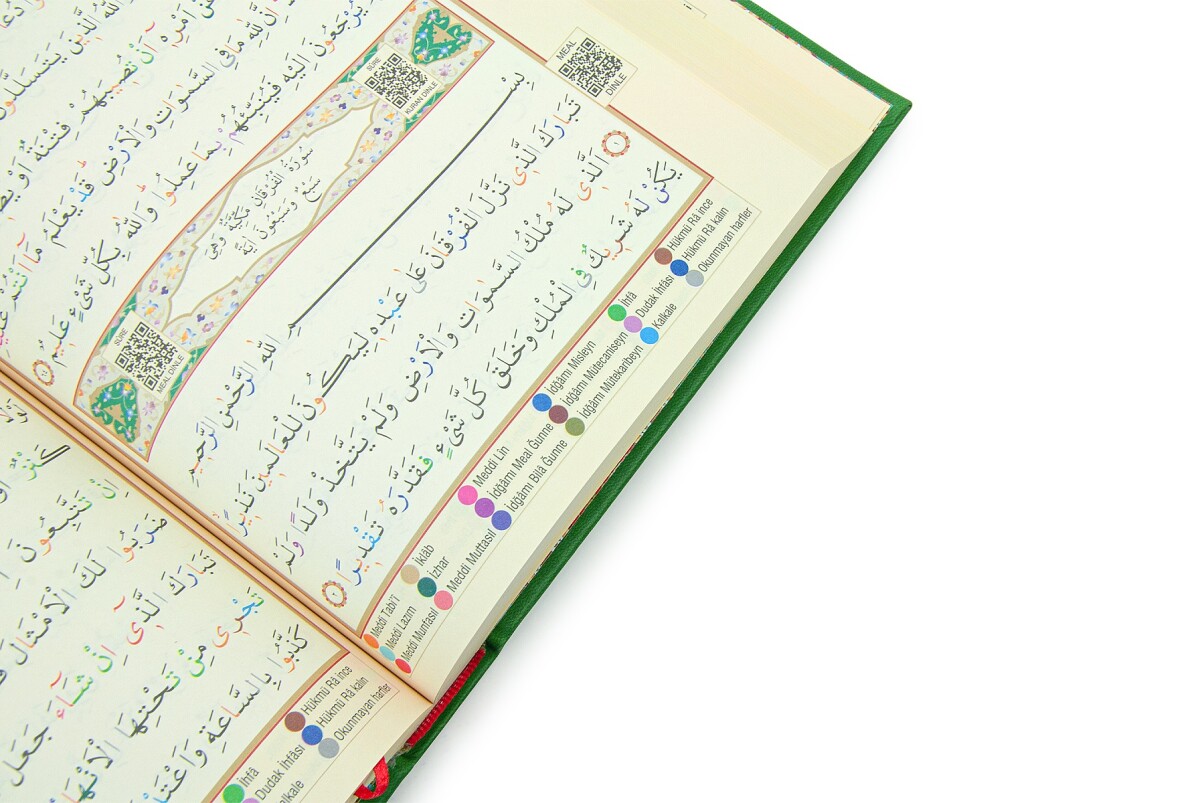 اللّٰهُ الَّذ۪ينَ يَتَسَلَّلُونَ
اَمْرِه۪ٓ اَنْ تُص۪يبَهُمْ فِتْنَةٌ اَوْ
اِنَّ لِلّٰهِ مَا فِي السَّمٰوَاتِ وَالْاَرْضِ قَدْ يَعْلَمُ مَٓا اَنْتُمْ
يُرْجَعُونَ اِلَيْهِ فَيُنَبِّئُهُمْ بِمَا عَمِلُوا وَاللّٰهُ بِكُلِّ شَيْءٍ عَل۪يمٌ ٦٤
SÛRE
KURAN DİNLE
سُورَةُ الْفُرْقَانِ مَكِّيَّةٌ وَهِيَ
سَبْعٌ وَسَبْعُونَ اٰيَةً
SÛRE
MEAL DİNLE
MEAL
DİNLE
بِسْمِ اللّٰهِ الرَّحْمٰنِ الرَّح۪يمِ
تَبَارَكَ الَّذ۪ي نَزَّلَ الْفُرْقَانَ عَلٰى عَبْدِه۪ لِيَكُونَ لِلْعَالَم۪ينَ نَذ۪يرًا
١ اَلَّذ۪ي لَهُ مُلْكُ السَّمٰوَاتِ وَالْاَرْضِ وَلَمْ يَتَّخِذْ وَلَدًا وَلَمْ
يَكُنْ لَهُ شَر۪يكٌ فِي الْمُلْكِ وَخَلَقَ كُلَّ شَيْءٍ فَقَدَّرَهُ تَقْد۪يرًا ٢
Meddi Tabi'î
Meddi Lazım
Meddi Munfasıl
İklâb
İzhar
Meddi Muttasıl
Meddi Lîn
İdğâmı Meal Ğunne
İdğâmı Bilâ Ğunne
İdğâmı Misleyn
İdğâmı Mütecaniseyn
İdğâmı Mütekaribeyn
İhfâ
Dudak İhfâsı
Kalkale
Hükmü Râ ince
Hükmü Râ kalın
Okunmayan harfler
كَنْزٌ اَوْ
اِنْ تَتَّبِعُونَ
ضَرَبُوا لَكَ الْاَمْثَالَ
تَبَارَكَ الَّذ۪ٓي اِنْ شَٓاءَ جَعَلَ
تَجْر۪ي مِنْ تَحْتِهَا الْاَنْهَا
كَذَّبُوا بِالسَّاعَةِ وَاَعْتَ
İhfâ
Dudak İhfâsı
Kalkale
Hükmü Râ ince
Hükmü Râ kalın
Okunmayan harfler